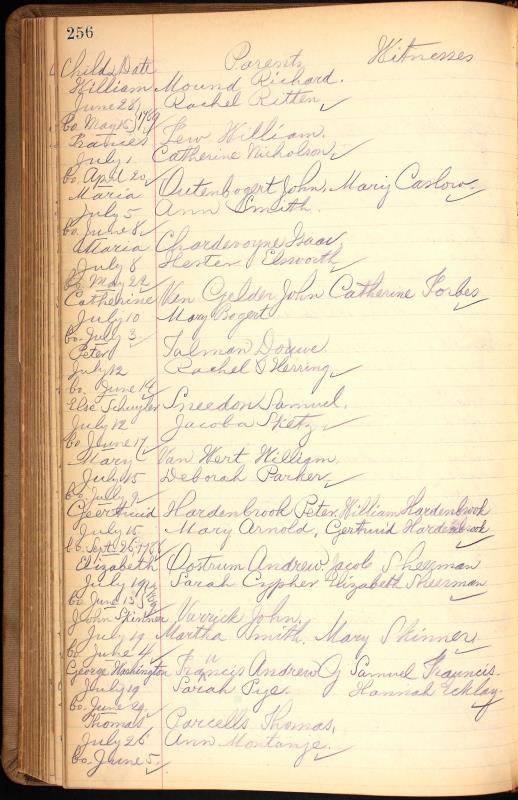 256
Childs Date Parents Witnesses
William Mound Richard.
June 26, Rachel Ritten
bo. May 15, 1789
Frances Lew William.
July 1 Catherine Nicholson,
bo. April 20,
Maria Outenbogert John, Mary Caslow.
July 5 Ann Smith.
bo. June 8,
Maria Chardevoyne Isaac,
July 8 Hester Elsworth
bo. May 22
Catherine Van Gelder John Catherine Forbes
July 10 Mary Bogert
bo. July 3
Peter Talman Douwe
July 12 Rachel Herring
bo. June 14
Else Schuyler Sneedon Samuel,
July 12 Jacoba
bo. June 17
Mary Van Wert William,
July 15 Deborah Parker
bo. July 9
Geertruid Hardenbrook Peter, William Hardenbrook
July 15 Mary Arnold, Gertruid Hardenbrook
bo. Sept. 26, 1788
Elizabeth Oostrum Andrew. Jacob Sheerman
July 19 Sarah Cypher Elizabeth Sheerman
bo. June 13,
John Skinner Varrick John,
July 19 Martha Smith. Mary Skinner
bo. June 4
George Washington Francis Andrew G Samuel Frauncis.
July 19 Sarah Pye. Hannah
bo. June 29.
Thomas Parcells Thomas,
July 26 Ann Montanje.
bo. June 5,